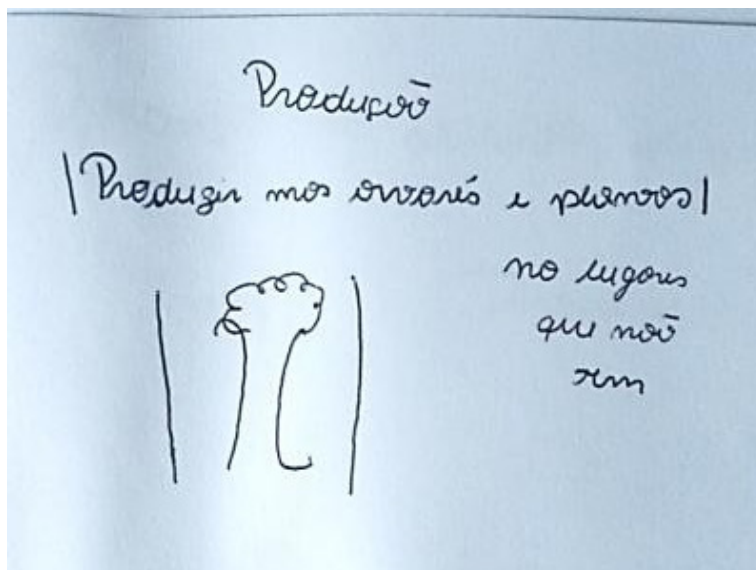 Produção
|Produzir mos arvorés e plantas|
no lugares
que não
tem